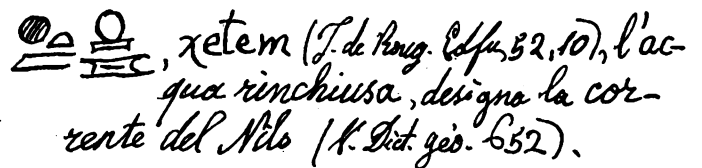 , χetem (J. de Roug. Edfu, 52, 10), l'ac-
qua rinchiusa, designa la cor-
rente del Nilo (V. Dict. géo. 652).